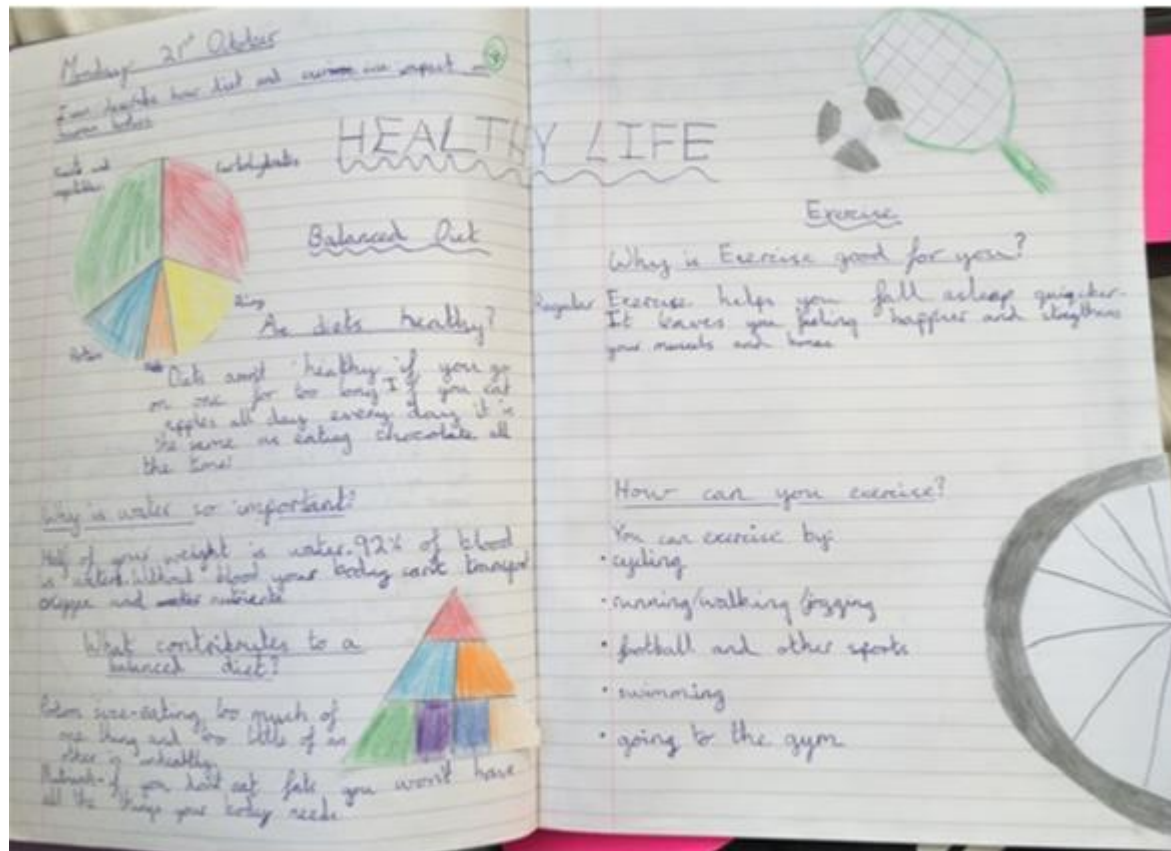 Monday 21st October
I can describe how diet and exercise impact on
human bodies
HEALTHY LIFE
Fruits and
vegetables
Carbohydrates
Balanced Diet
Dairy
Protein
Are diets healthy?
Diets aren't healthy if you go
on one for too long. If you eat
apples all day every day it is
the same as eating chocolate all
the time.
Why is water so important?
Half of your weight is water. 92% of blood
is water. Without blood your body can't transport
oxygen and nutrients
What contributes to a
balanced diet?
Portion size-eating too much of
one thing and too little of an
other is unhealthy
Nutrients-if you don't eat fats you won't have
all the things your body needs
Exercise
Why is Exercise good for you?
Regular Exercise helps you fall asleep quicker.
It leaves you feeling happier and strengthens
your muscels and bones
How can you exercise?
You can exercise by:
• cycling
• running/walking/jogging
• football and other sports
• swimming
• going to the gym